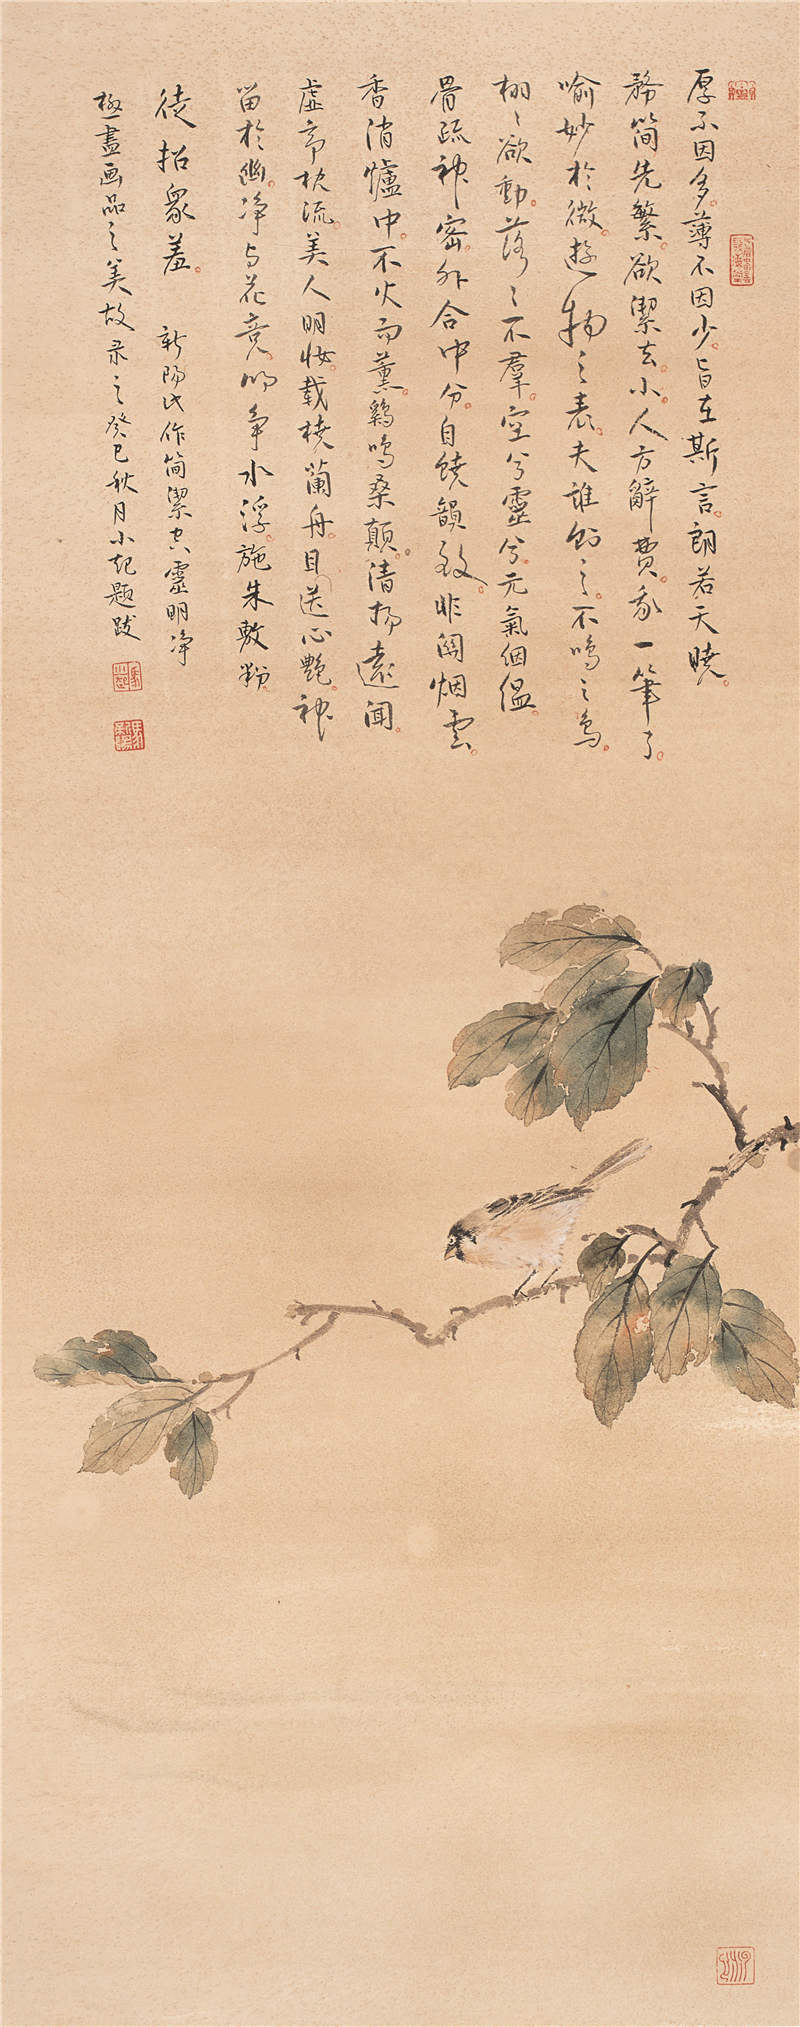 厚不因多。薄不因少。旨在斯言。朗若天曉。
務简先繁。欲潔去小。人方辭費。我一筆了。
喻妙於微。遊物之表。夫誰則之。不鳴之鳥。
栩〻欲動。落〻不羣。空兮靈兮。元氣絪緼。
骨疏神密。外合中分。自饒韻致。非関烟雲。
香消爐中。不火而薰。鷄鳴桑顛。清揚遠聞。
虚亭枕流。美人明妝。載橈蘭舟。目送心艷。神
留於幽。净与花竞。明争水浮。施朱敷粉。
徒招衆羞。 新陽氏作简潔空靈明净
極盡画品之美故录之癸巳秋月小起題跋